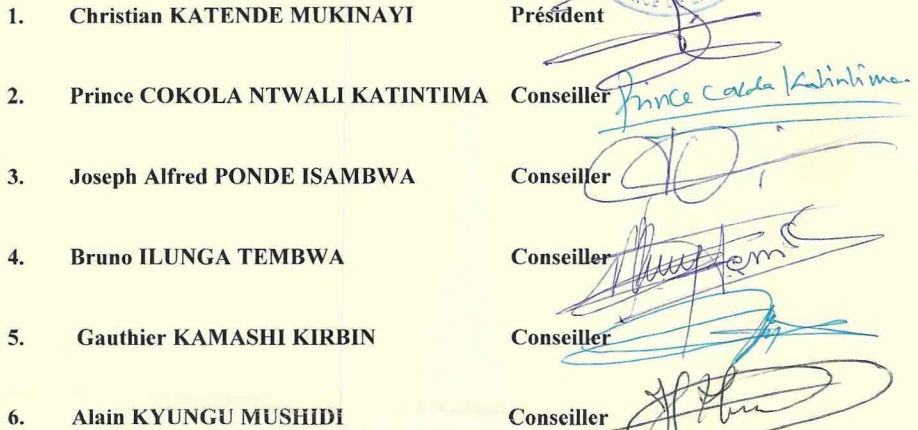 1. Christian KATENDE MUKINAYI Président
2. Prince COKOLA NTWALI KATINTIMA Conseiller Prince Katintima
3. Joseph Alfred PONDE ISAMBWA Conseiller
4. Bruno ILUNGA TEMBWA Conseiller
5. Gauthier KAMASHI KIRBIN Conseiller
6. Alain KYUNGU MUSHIDI Conseiller